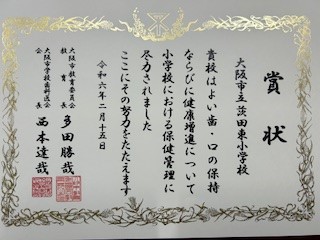 賞状
大阪市立茨田東小学校
貴校はよい歯・口の保持
ならびに健康増進について
小学校における保健管理に
尽力されました
ここにその努力をたたえます
令和六年二月十五日
大阪市教育委員会
教育長 多田勝哉
大阪市学校歯科医会
会長 西本達哉